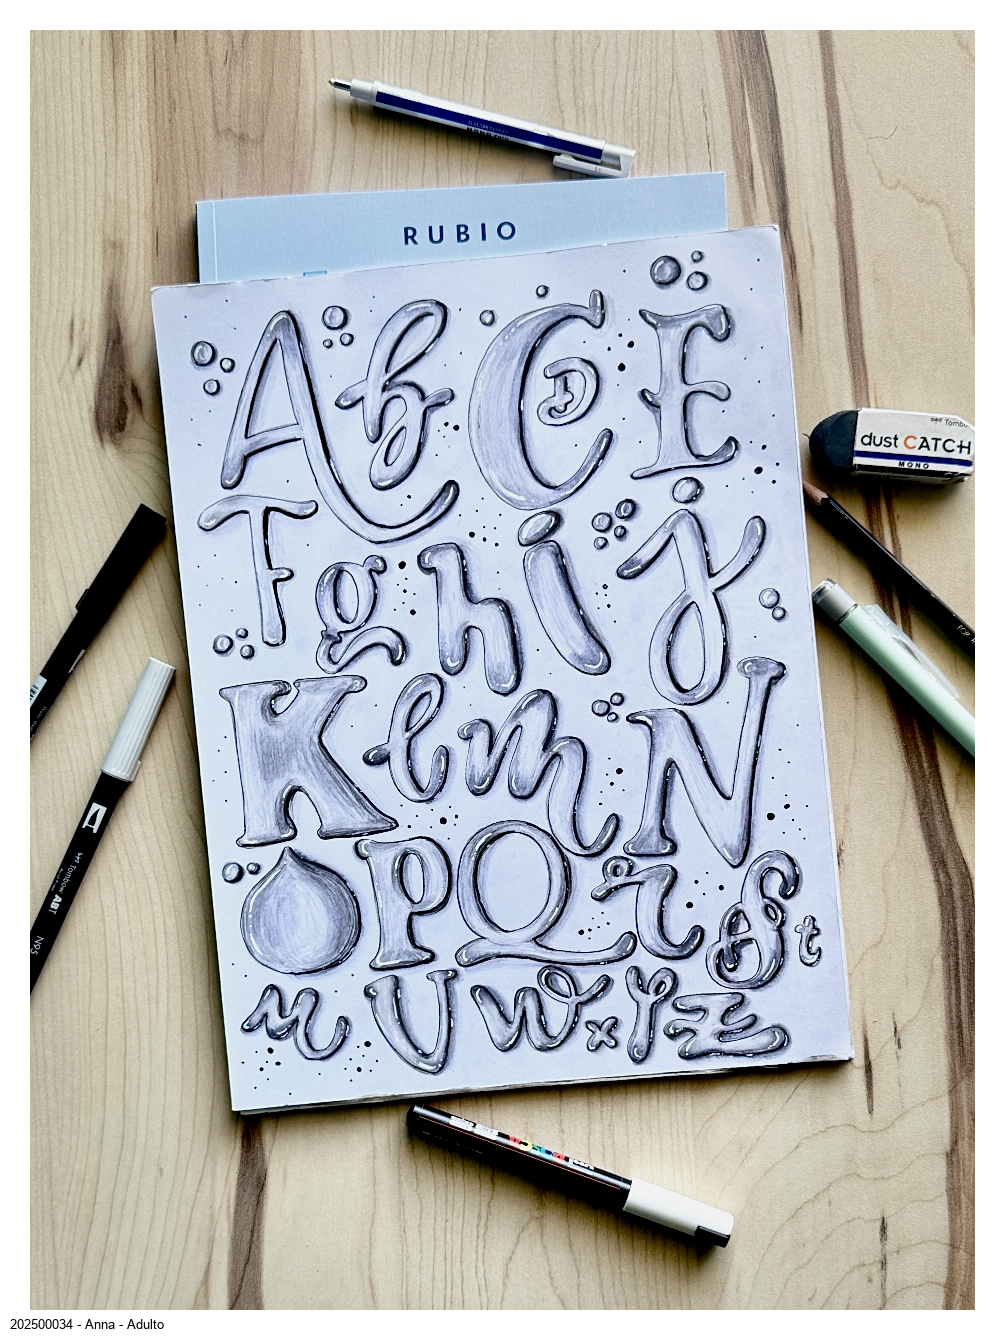 RUBIO
A b C D E
F g h i j
K l m N
O P Q r S t
u V w x y Z
dust CATCH
MONO
Tombow ABT
N95
202500034 - Anna - Adulto